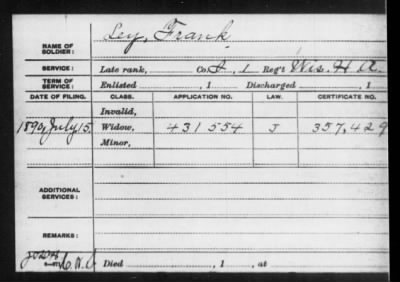 NAME OF SOLDIER: Ley, Frank
SERVICE: Late rank, Co. I, 1 Reg't Wis. H A.
TERM OF SERVICE: Enlisted , 1 Discharged , 1
DATE OF FILING. CLASS. APPLICATION NO. LAW. CERTIFICATE NO.
Invalid,
1890, July 15. Widow, 431554 J 357,429
Minor,
ADDITIONAL SERVICES:
REMARKS:
Died , 1 , at